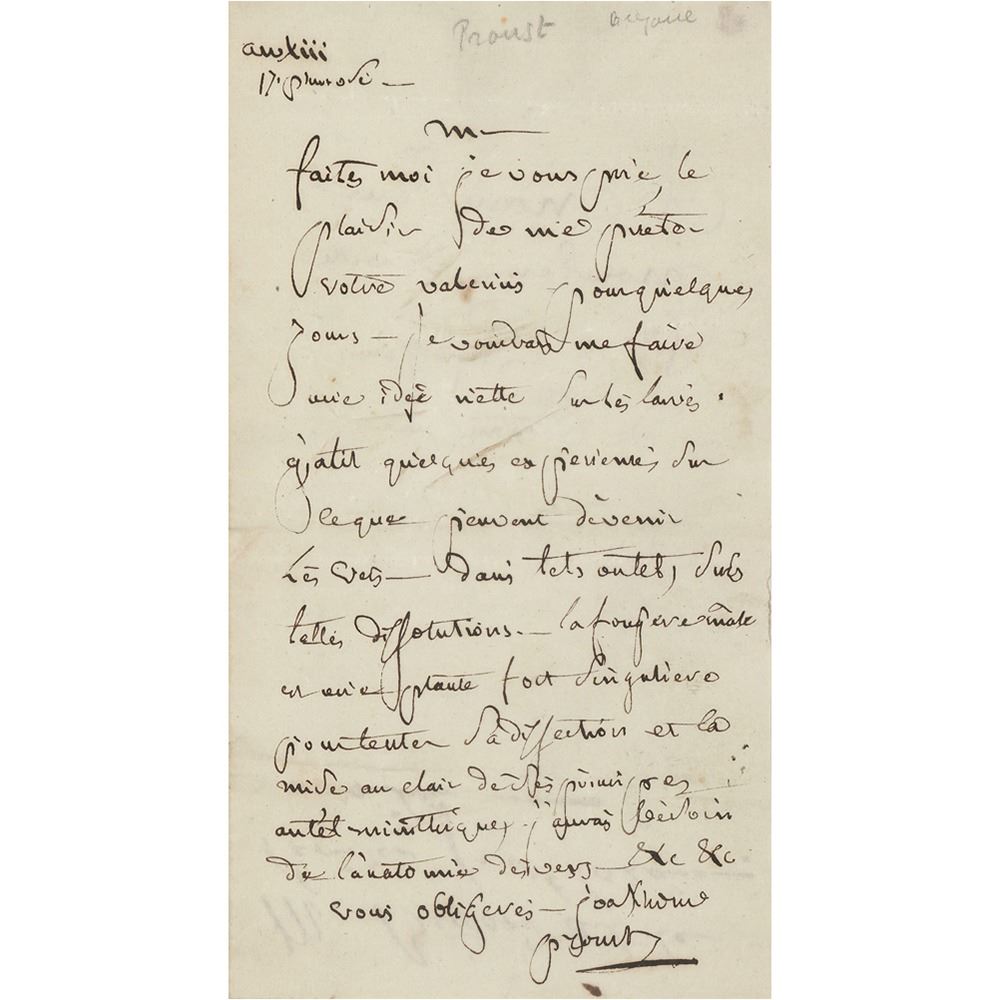 Proust
an xiii
17 pluviose —
M —
faites moi je vous prie, le
plaisir de me preter
votre valerius pour quelques
jours — je voudrais me faire
une idée nette sur les larves.
quelques experiences sur
le que peuvent devenir
Les vers — dans tels ou tels, sucs
telles dissolutions. — la fougere mâle
est une plante fort singuliere
pour tenter sa dissection et la
mise au clair de ses principes
antelminthiques, j'aurai besoin
de l'anatomie des vers — &c &c
vous obligeres — joakhime
proust